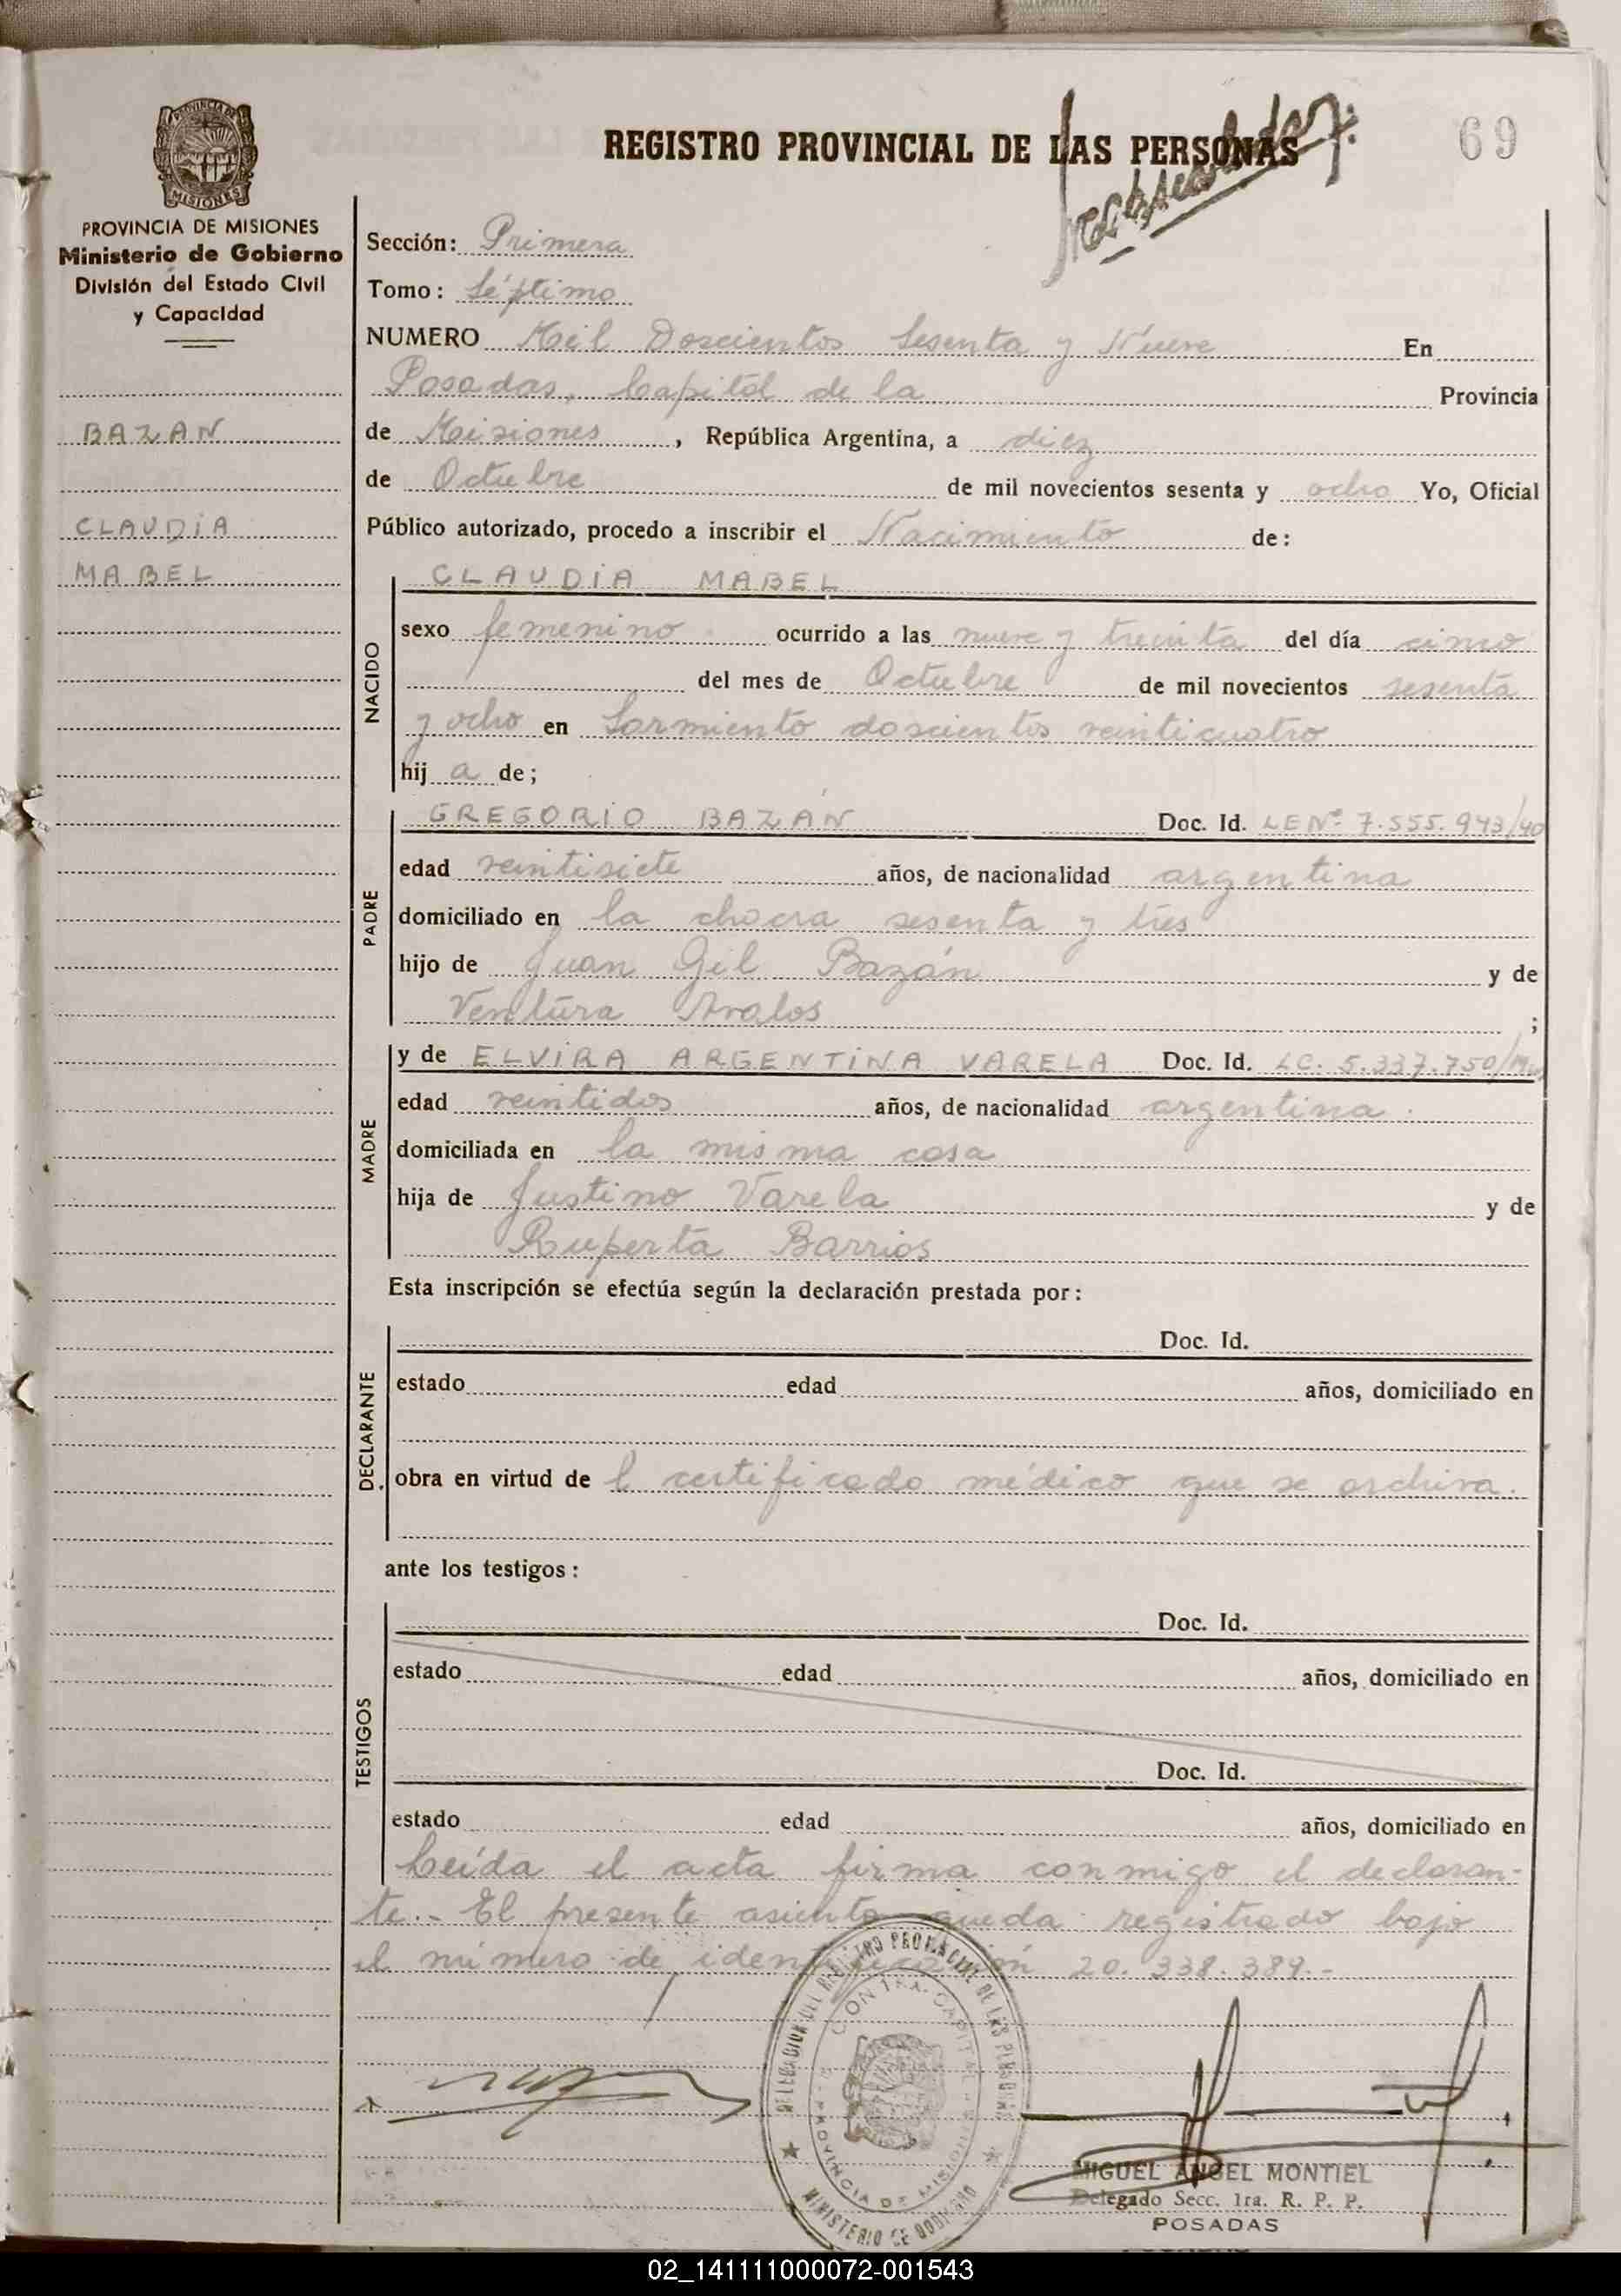 REGISTRO PROVINCIAL DE LAS PERSONAS
69
PROVINCIA DE MISIONES
PROVINCIA DE MISIONES
Ministerio de Gobierno
División del Estado Civil
y Capacidad
BAZAN
CLAUDIA
MABEL
Sección: Primera
Tomo: Séptimo
NUMERO Mil Doscientos Sesenta y Nueve En
Posadas, Capital de la Provincia
de Misiones, República Argentina, a diez
de Octubre de mil novecientos sesenta y ocho Yo, Oficial
Público autorizado, procedo a inscribir el Nacimiento de:
NACIDO
CLAUDIA MABEL
sexo femenino ocurrido a las nueve y treinta del día cinco
del mes de Octubre de mil novecientos sesenta
y ocho en Sarmiento doscientos veinticuatro
hija de;
PADRE
GREGORIO BAZÁN Doc. Id. LE Nº 7.555.943/40
edad veintisiete años, de nacionalidad argentina
domiciliado en la chacra sesenta y tres
hijo de Juan Gil Bazán y de
Ventura Avalos ;
MADRE
y de ELVIRA ARGENTINA VARELA Doc. Id. LC. 5.337.750
edad veintidos años, de nacionalidad argentina.
domiciliada en la misma casa
hija de Justino Varela y de
Ruperta Barrios
Esta inscripción se efectúa según la declaración prestada por:
DECLARANTE
Doc. Id.
estado edad años, domiciliado en
D. obra en virtud de l certificado médico que se archiva.
ante los testigos:
TESTIGOS
Doc. Id.
estado edad años, domiciliado en
Doc. Id.
estado edad años, domiciliado en
Leída el acta firma conmigo el declaran-
te.- El presente asiento queda registrado bajo
el número de identificación 20.338.389.-
DELEGACION DEL REGISTRO PROVINCIAL DE LAS PERSONAS
MINISTERIO DE GOBIERNO
PROVINCIA DE MISIONES
MIGUEL ANGEL MONTIEL
Delegado Secc. 1ra. R. P. P.
POSADAS
02_141111000072-001543